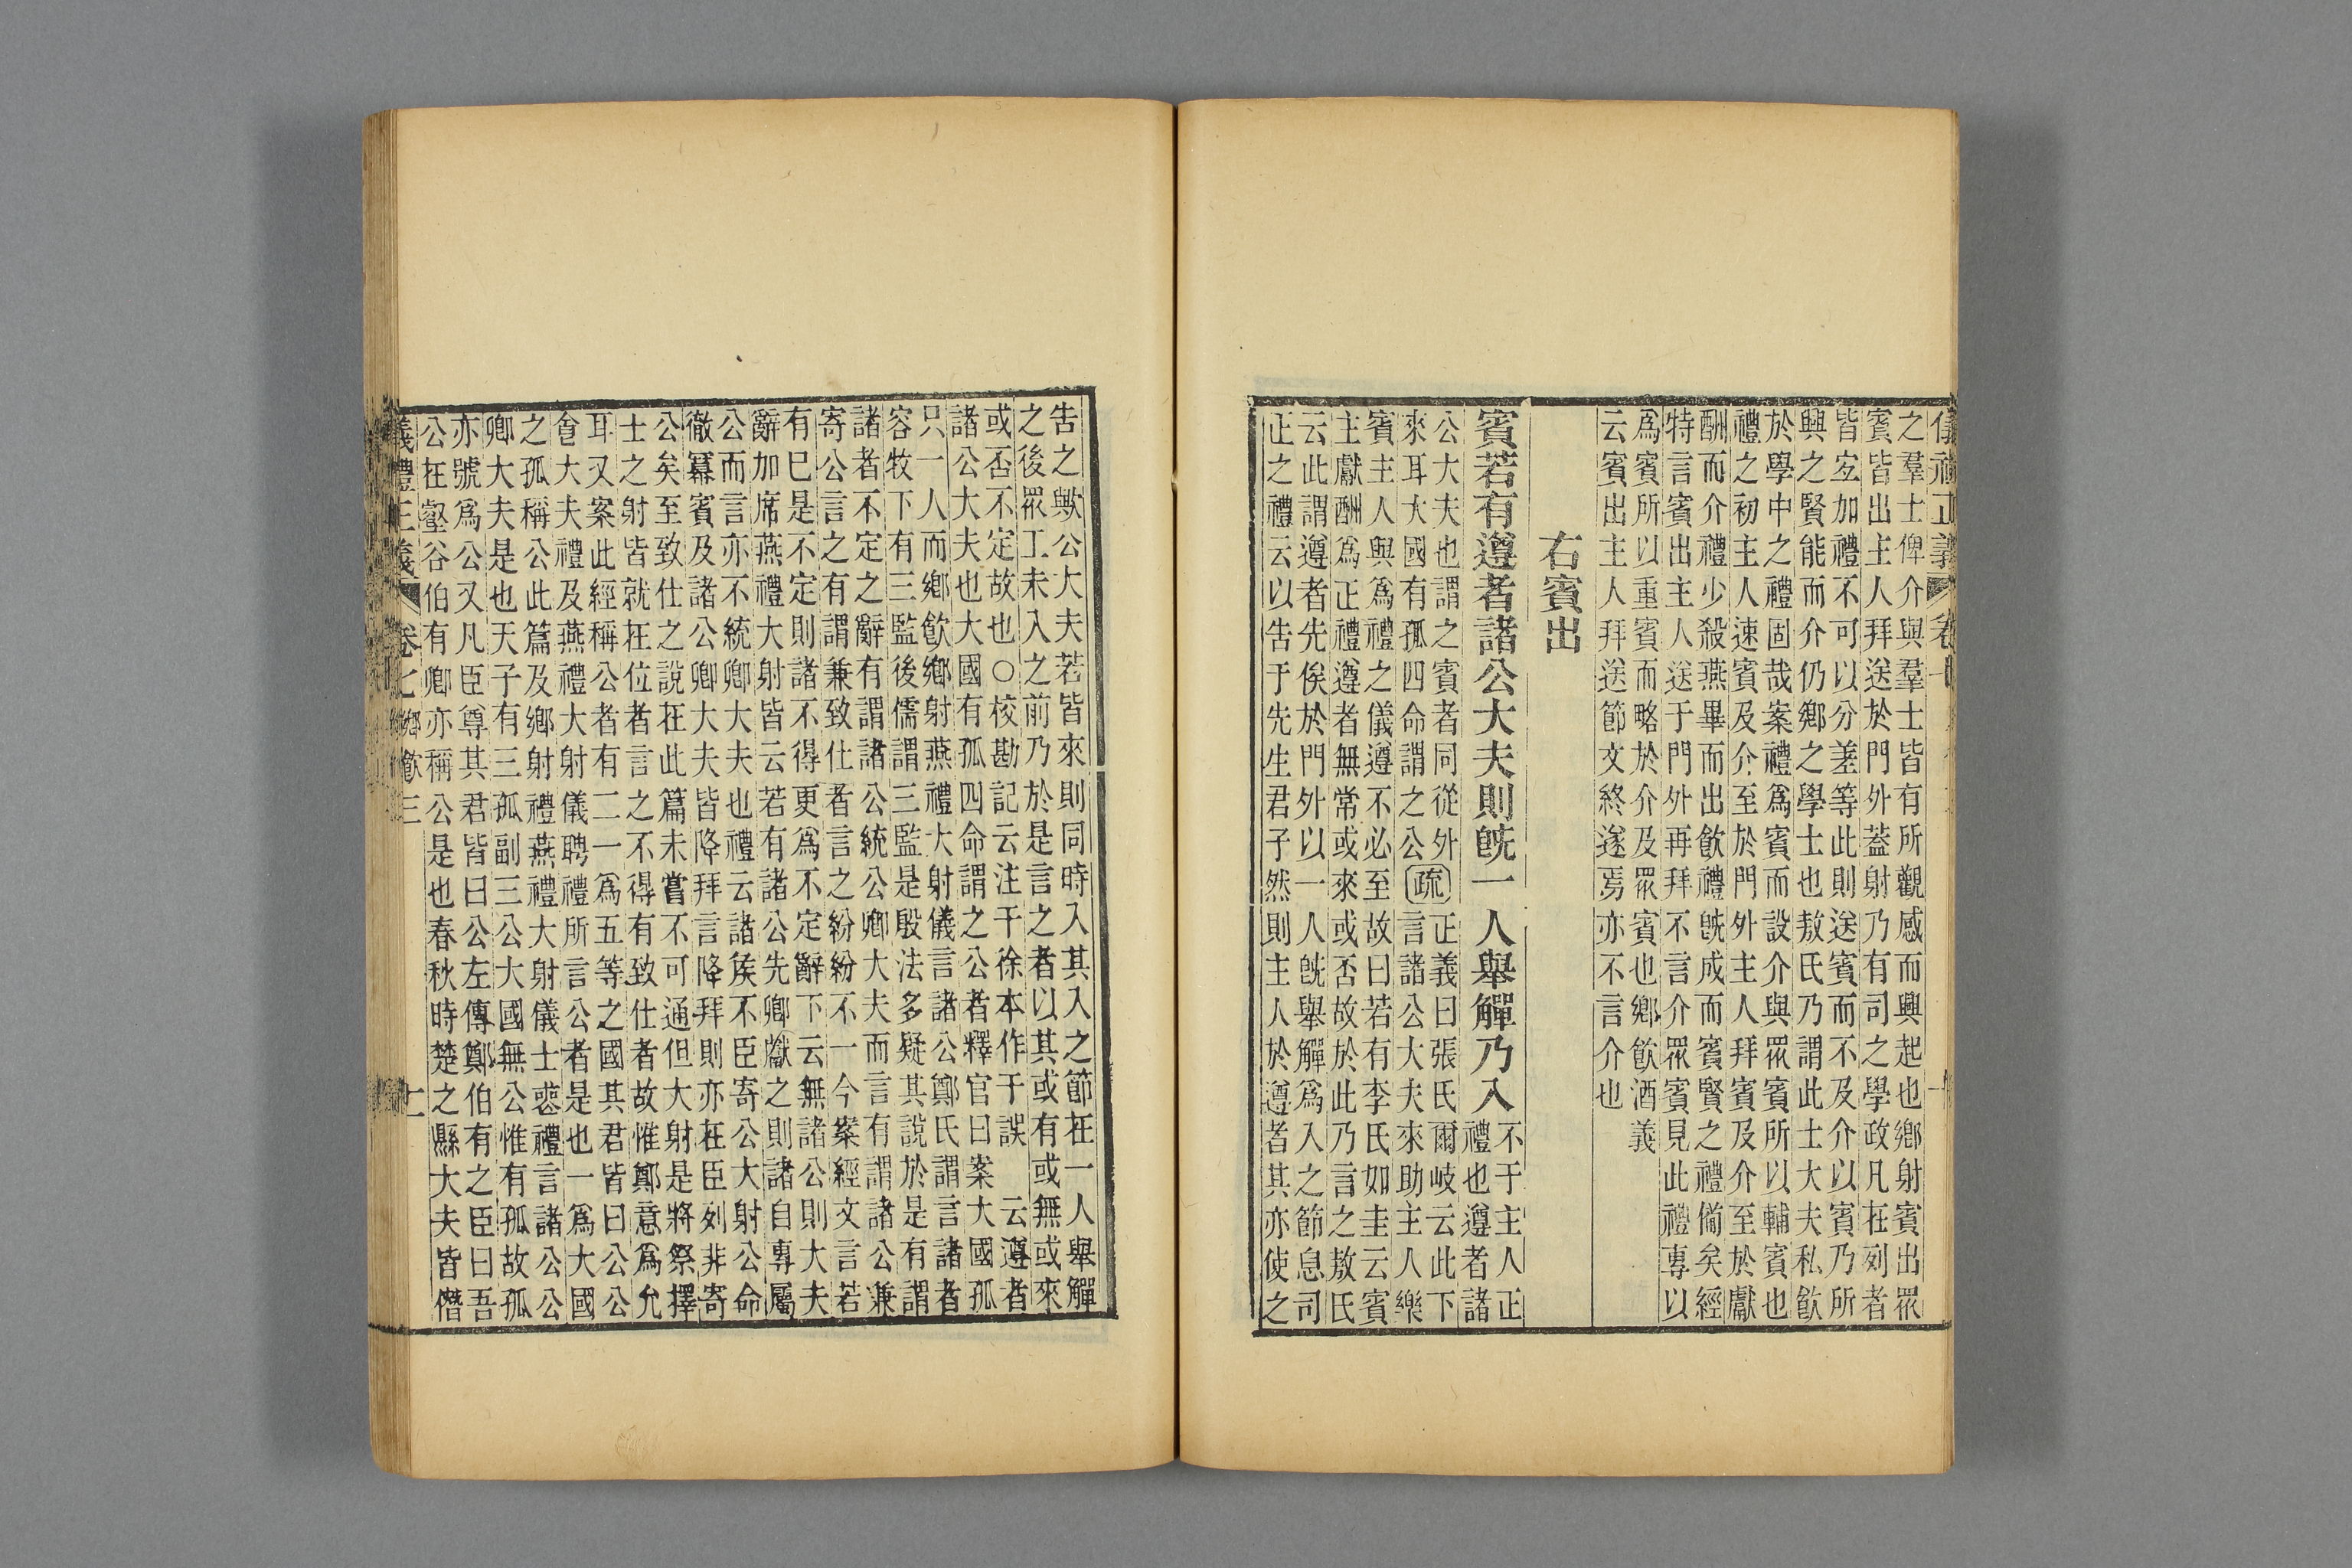 儀禮正義
之羣士俾介與羣士皆有所觀感而興起也鄉射賓出眾
賓皆出主人拜送於門外蓋射乃有司之學政凡在列者
皆宐加禮不可以分差等此則送賓而不及介以賓乃所
興之賢能而介仍鄉之學士也敖氏乃謂此士大夫私飮
於學中之禮固哉案禮爲賓而設介與眾賓所以輔賓也
禮之初主人速賓及介至於門外主人拜賓及介至於獻
酬而介禮少殺燕畢而出飮禮旣成而賓賢之禮僃矣經
特言賓出主人送于門外再拜不言介眾賓見此禮專以
爲賓所以重賓而略於介及眾賓也鄉飮酒義
云賓出主人拜送節文終遂焉亦不言介也
右賓出
賓若有遵者諸公大夫則旣一人舉觶乃入
不于主人正
禮也遵者諸
公大夫也謂之賓者同從外
來耳大國有孤四命謂之公
疏
正義曰張氏爾岐云此下
言諸公大夫來助主人樂
賓主人與爲禮之儀遵不必至故曰若有李氏如圭云賓
主獻酬爲正禮遵者無常或來或否故於此乃言之敖氏
云此謂遵者先俟於門外以一人旣舉觶爲入之節息司
正之禮云以告于先生君子然則主人於遵者其亦使之
告之歟公大夫若皆來則同時入其入之節在一人舉觶
之後眾工未入之前乃於是言之者以其或有或無或來
或否不定故也○校勘記云注干徐本作于誤　云遵者
諸公大夫也大國有孤四命謂之公者釋官曰案大國孤
只一人而鄉飮鄉射燕禮大射儀言諸公鄭氏謂言諸者
容牧下有三監後儒謂三監是殷法多疑其說於是有謂
諸者不定之辭有謂諸公統公卿大夫而言有謂諸公兼
寄公言之有謂兼致仕者言之紛紛不一今案經文言若
有巳是不定則諸不得更爲不定辭下云無諸公則大夫
辭加席燕禮大射皆云若有諸公先卿獻之則諸自專屬
公而言亦不統卿大夫也禮云諸侯不臣寄公大射公命
徹冪賓及諸公卿大夫皆降拜言降拜則亦在臣列非寄
公矣至致仕之說在此篇未嘗不可通但大射是將祭擇
士之射皆就在位者言之不得有致仕者故惟鄭意爲允
耳又案此經稱公者有二一爲五等之國其君皆曰公公
會大夫禮及燕禮大射儀聘禮所言公者是也一爲大國
之孤稱公此篇及鄉射禮燕禮大射儀士喪禮言諸公公
卿大夫是也天子有三孤副三公大國無公惟有孤故孤
亦號爲公又凡臣尊其君皆曰公左傳鄭伯有之臣曰吾
公在壑谷伯有卿亦稱公是也春秋時楚之縣大夫皆僭
儀禮正義　卷七　鄉飮三